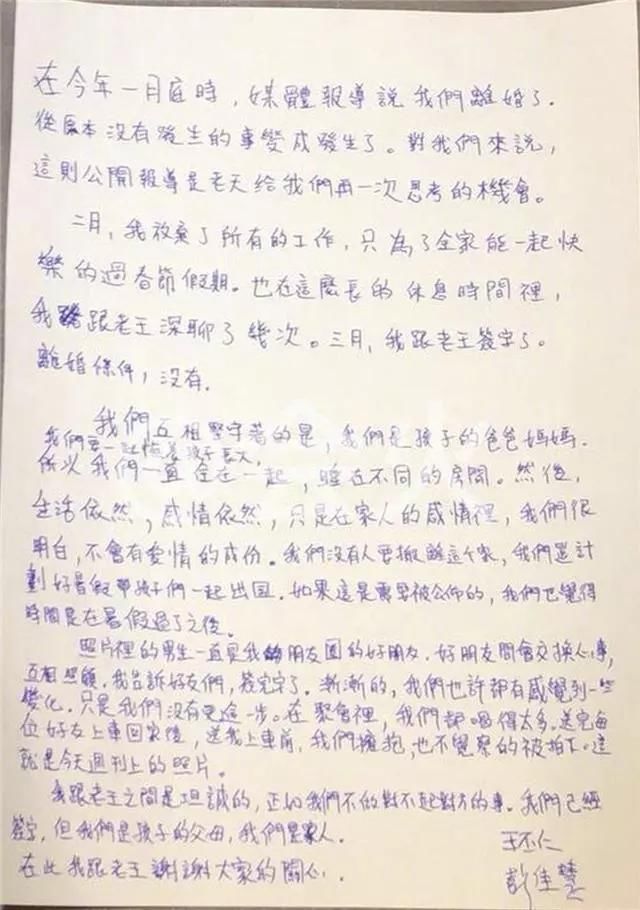 在今年一月底時，媒體報導說我們離婚了．
從原本沒有發生的事變成發生了。對我們來說，
這則公開報導是老天給我們再一次思考的機會。
二月，我放棄了所有的工作，只為了全家能一起快
樂的過春節假期。也在這麼長的休息時間裡，
我跟老王深聊了幾次。三月，我跟老王簽字了。
離婚條件，沒有．
我們互相堅守著的是，我們是孩子的爸爸媽媽．
我們要一起陪著孩子長大，
所以我們一直住在一起，睡在不同的房間。然後，
生活依然，感情依然，只是在家人的感情裡，我們很
明白，不會有愛情的成份。我們沒有人要搬離這个家，我們是計
劃好暑假帶孩子們一起出国．如果這是需要被公佈的，我們也覺得
時間是在暑假過了之後。
照片裡的男生一直是我朋友圈的好朋友．好朋友間會交換心事，
互相照顧．我告訴好友們，簽完字了．漸漸的，我們也許都有感覺到一些
變化．只是我們沒有更進一步。在聚會裡，我們都喝得太多．送完每
位好友上車回家後，送我上車前，我們擁抱，也不覺察的被拍下。這
就是今天週刊上的照片。
我跟老王之間是坦誠的，正如我們不做對不起對方的事．我們已經
簽字，但我們是孩子的父母，我們是家人．
在此我跟老王謝謝大家的關心．
王丕仁
彭佳慧